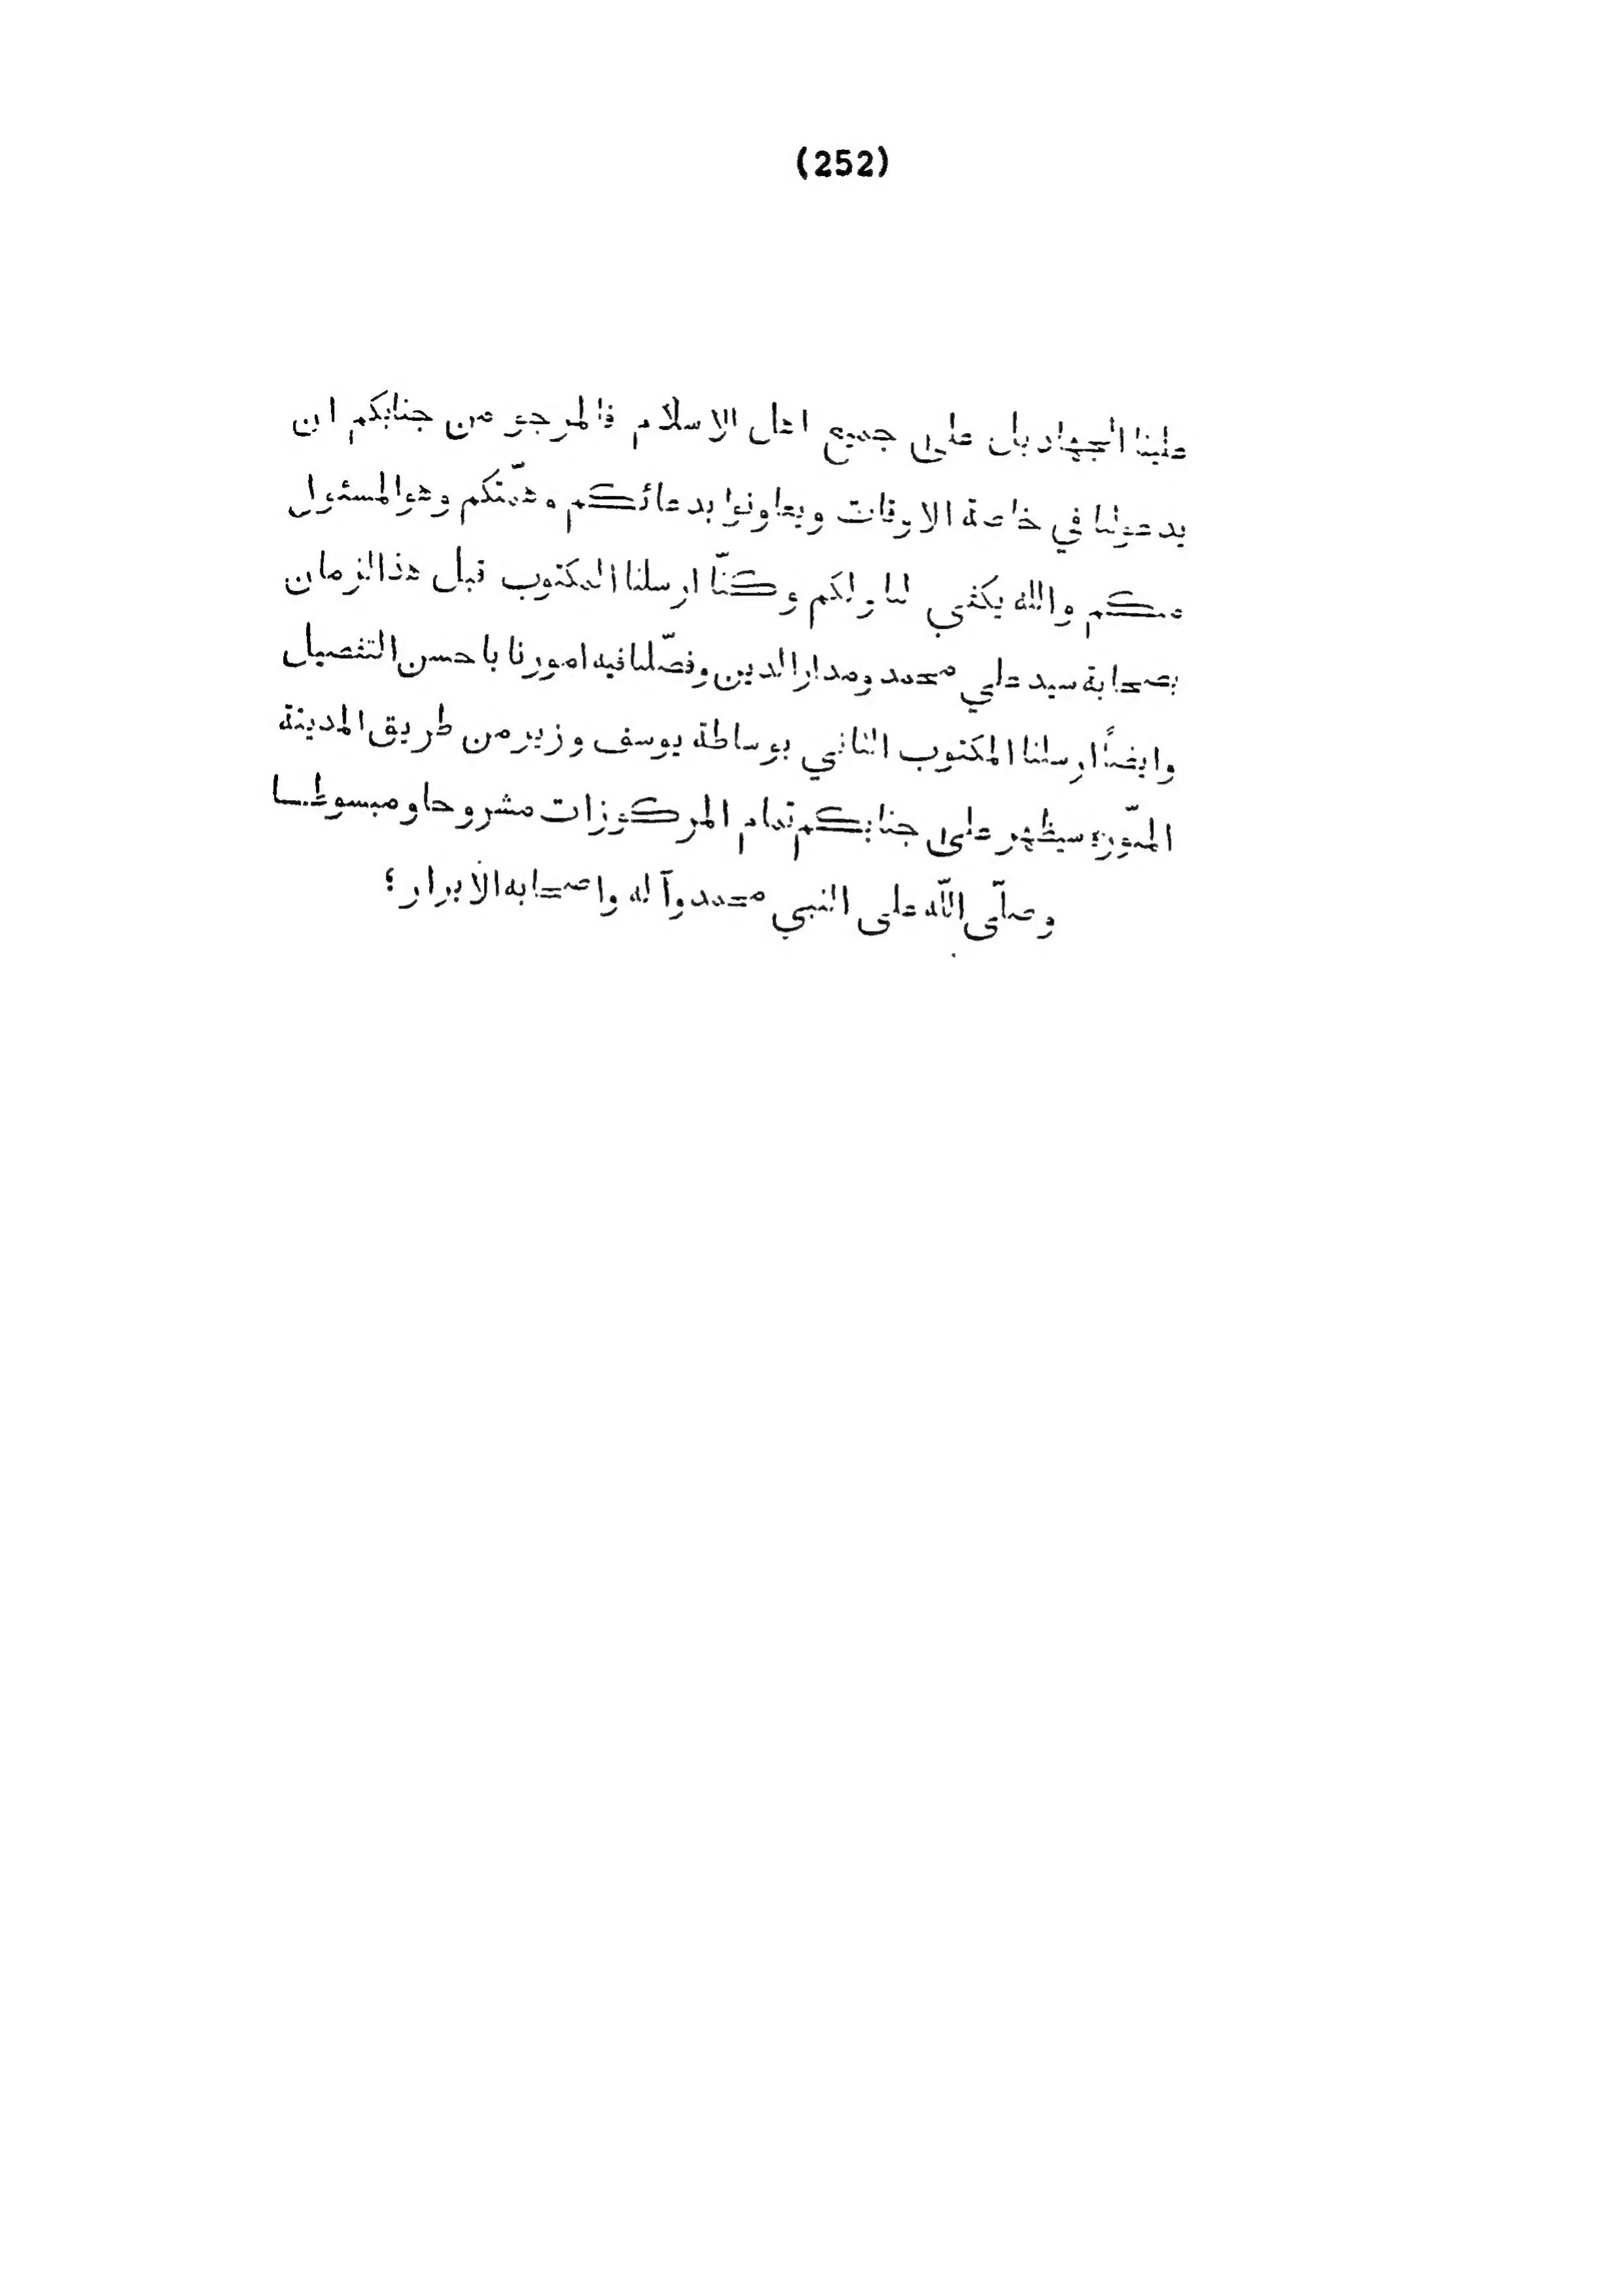 (252)
علينا الجهاد بل على جميع اهل الاسلام فالمرجو من جنابكم ان
يدعولنا في خاصة الاوقات ويعاونوا بدعائكم وهمّتكم وهوالمسئول
منكم والله يكفي لنا ولكم وكنّا ارسلنا المكتوب قبل هذالزمان
بصحابة سيد علي محمد ومدارالدين وفصّلنافيه امورنا باحسن التفصيل
وايضاً ارسلنا المكتوب الثاني بوساطة يوسف وزير من طريق المدينة
المنّورة سيظهر على جنابكم تمام المركوزات مشروحا ومبسوطـا
وصلّى اللّه على النبي محمد وآله واصحابه الأبرار ؛